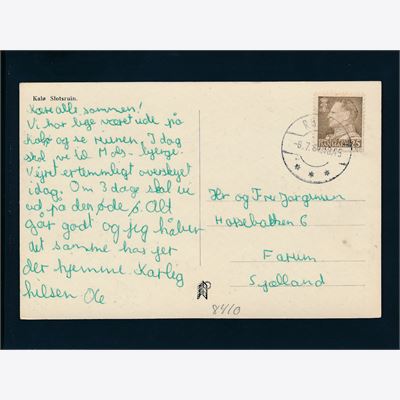 Kalø Slotsruin.
Kære alle sammen!
Vi har lige været ude på
Kalø og se ruinen, I dag
skal vi til Mols-bjerge.
Vejret er temmligt overskyet
idag. Om 3 dage skal vi
ud på den øde ø. Alt
går godt og jeg håber
det samme har jer
der hjemme. Kærlig
hilsen Ole
DANMARK 25
-6.7.6
Hr og Fru Jørgensen
Hassebakken 6
Farum
Sjælland
8410